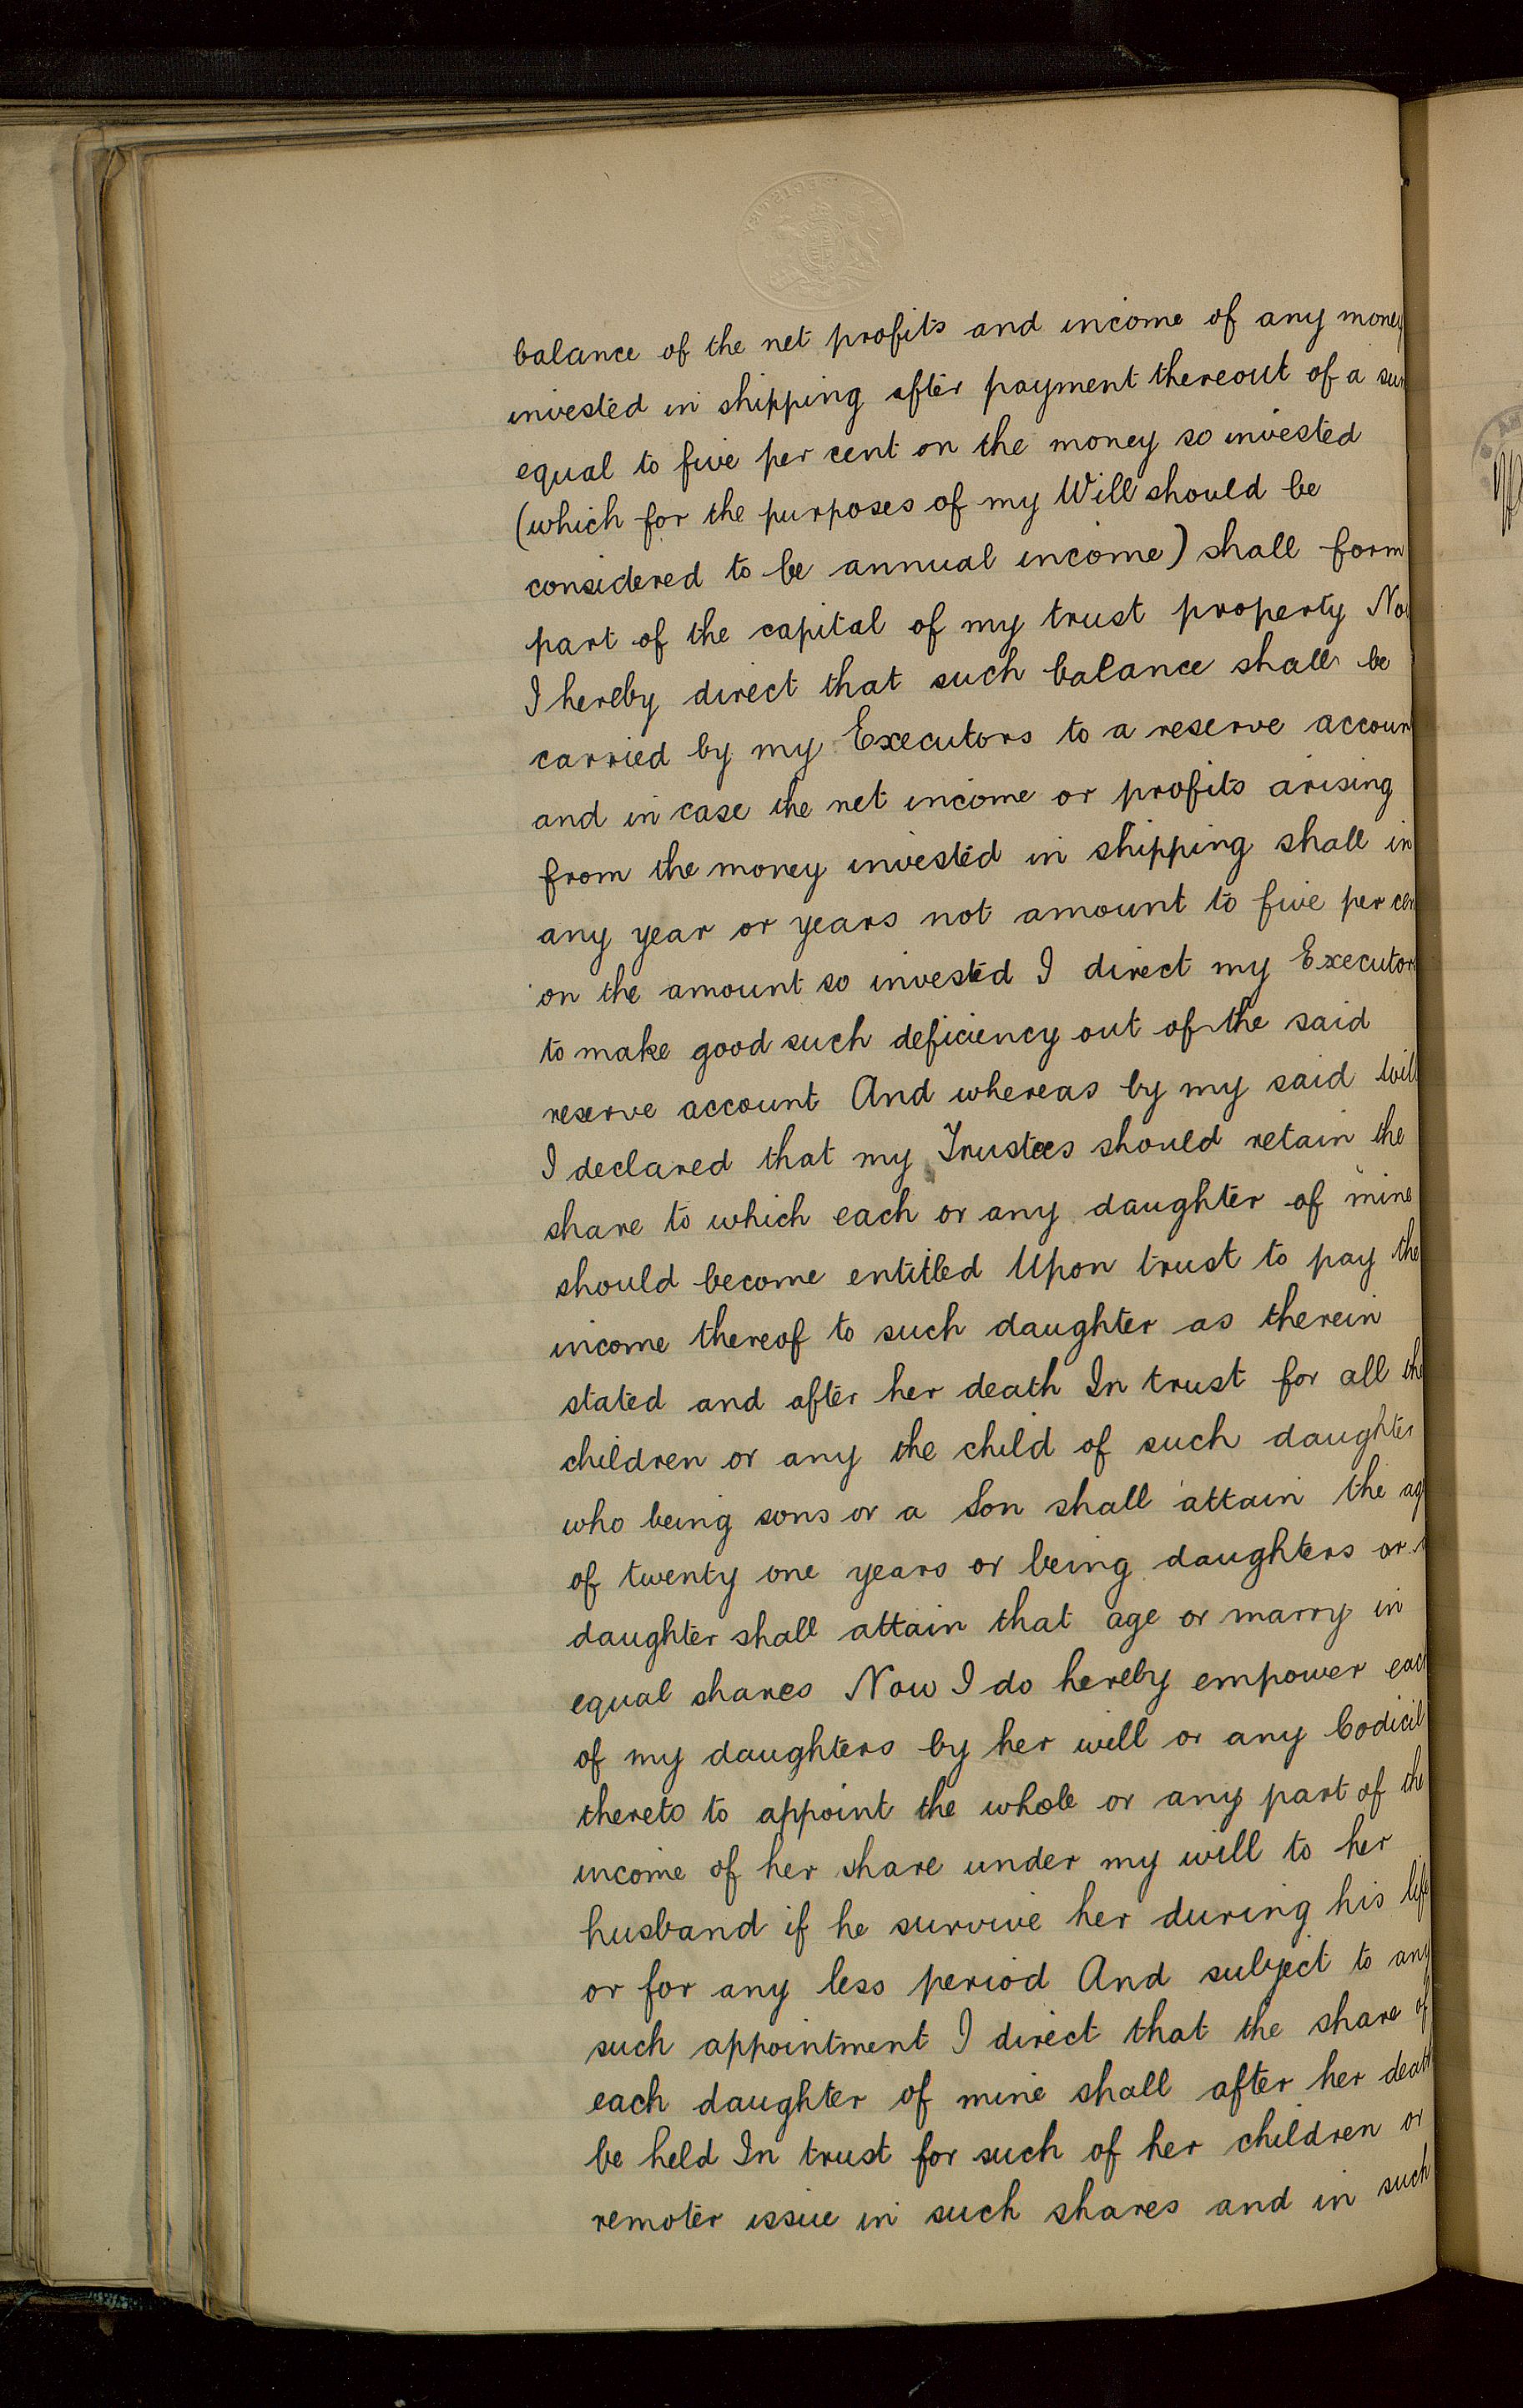 balance of the net profits and income of any money
invested in shipping after payment thereout of a su
equal to five per cent on the money so invested
(which for the purposes of my Will should be
considered to be annual income) shall form
part of the capital of my trust property No
I hereby direct that such balance shall be
carried by my Executors to a reserve accoun
and in case the net income or profits arising
from the money invested in shipping shall in
any year or years not amount to five per cen
on the amount so invested I direct my Executor
to make good such deficiency out of the said
reserve account And whereas by my said will
I declared that my Trustees should retain the
share to which each or any daughter of mine
should become entitled Upon trust to pay the
income thereof to such daughter as therein
stated and after her death In trust for all the
children or any the child of such daughter
who being sons or a Son shall attain the ag
of twenty one years or being daughters or
daughter shall attain that age or marry in
equal shares Now I do hereby empower eac
of my daughters by her will or any Codicil
thereto to appoint the whole or any part of the
income of her share under my will to her
husband if he survive her during his life
or for any less period And subject to any
such appointment I direct that the share of
each daughter of mine shall after her death
be held In trust for such of her children or
remoter issue in such shares and in such